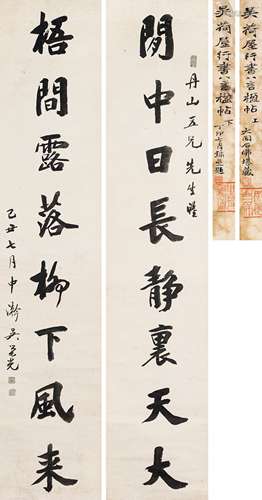 閒中日長靜裏天大
丹山五兄先生瞪
梧間露落柳下風來
乙丑七月中澣吳荣光
吳荷屋行書八言楹帖 上
吳荷屋行書八言楹帖 下